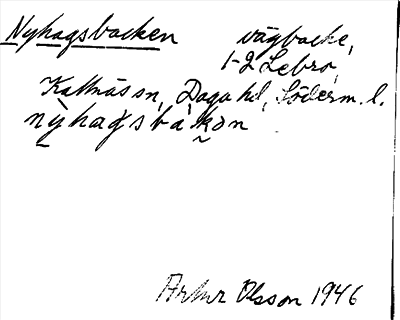 Nyhagsbacken vägbacke,
1-2 Lebro,
Kattnäs sn, Daga hd, Söderm. l.
nỳhagsbàkən
Artur Olsson 1946